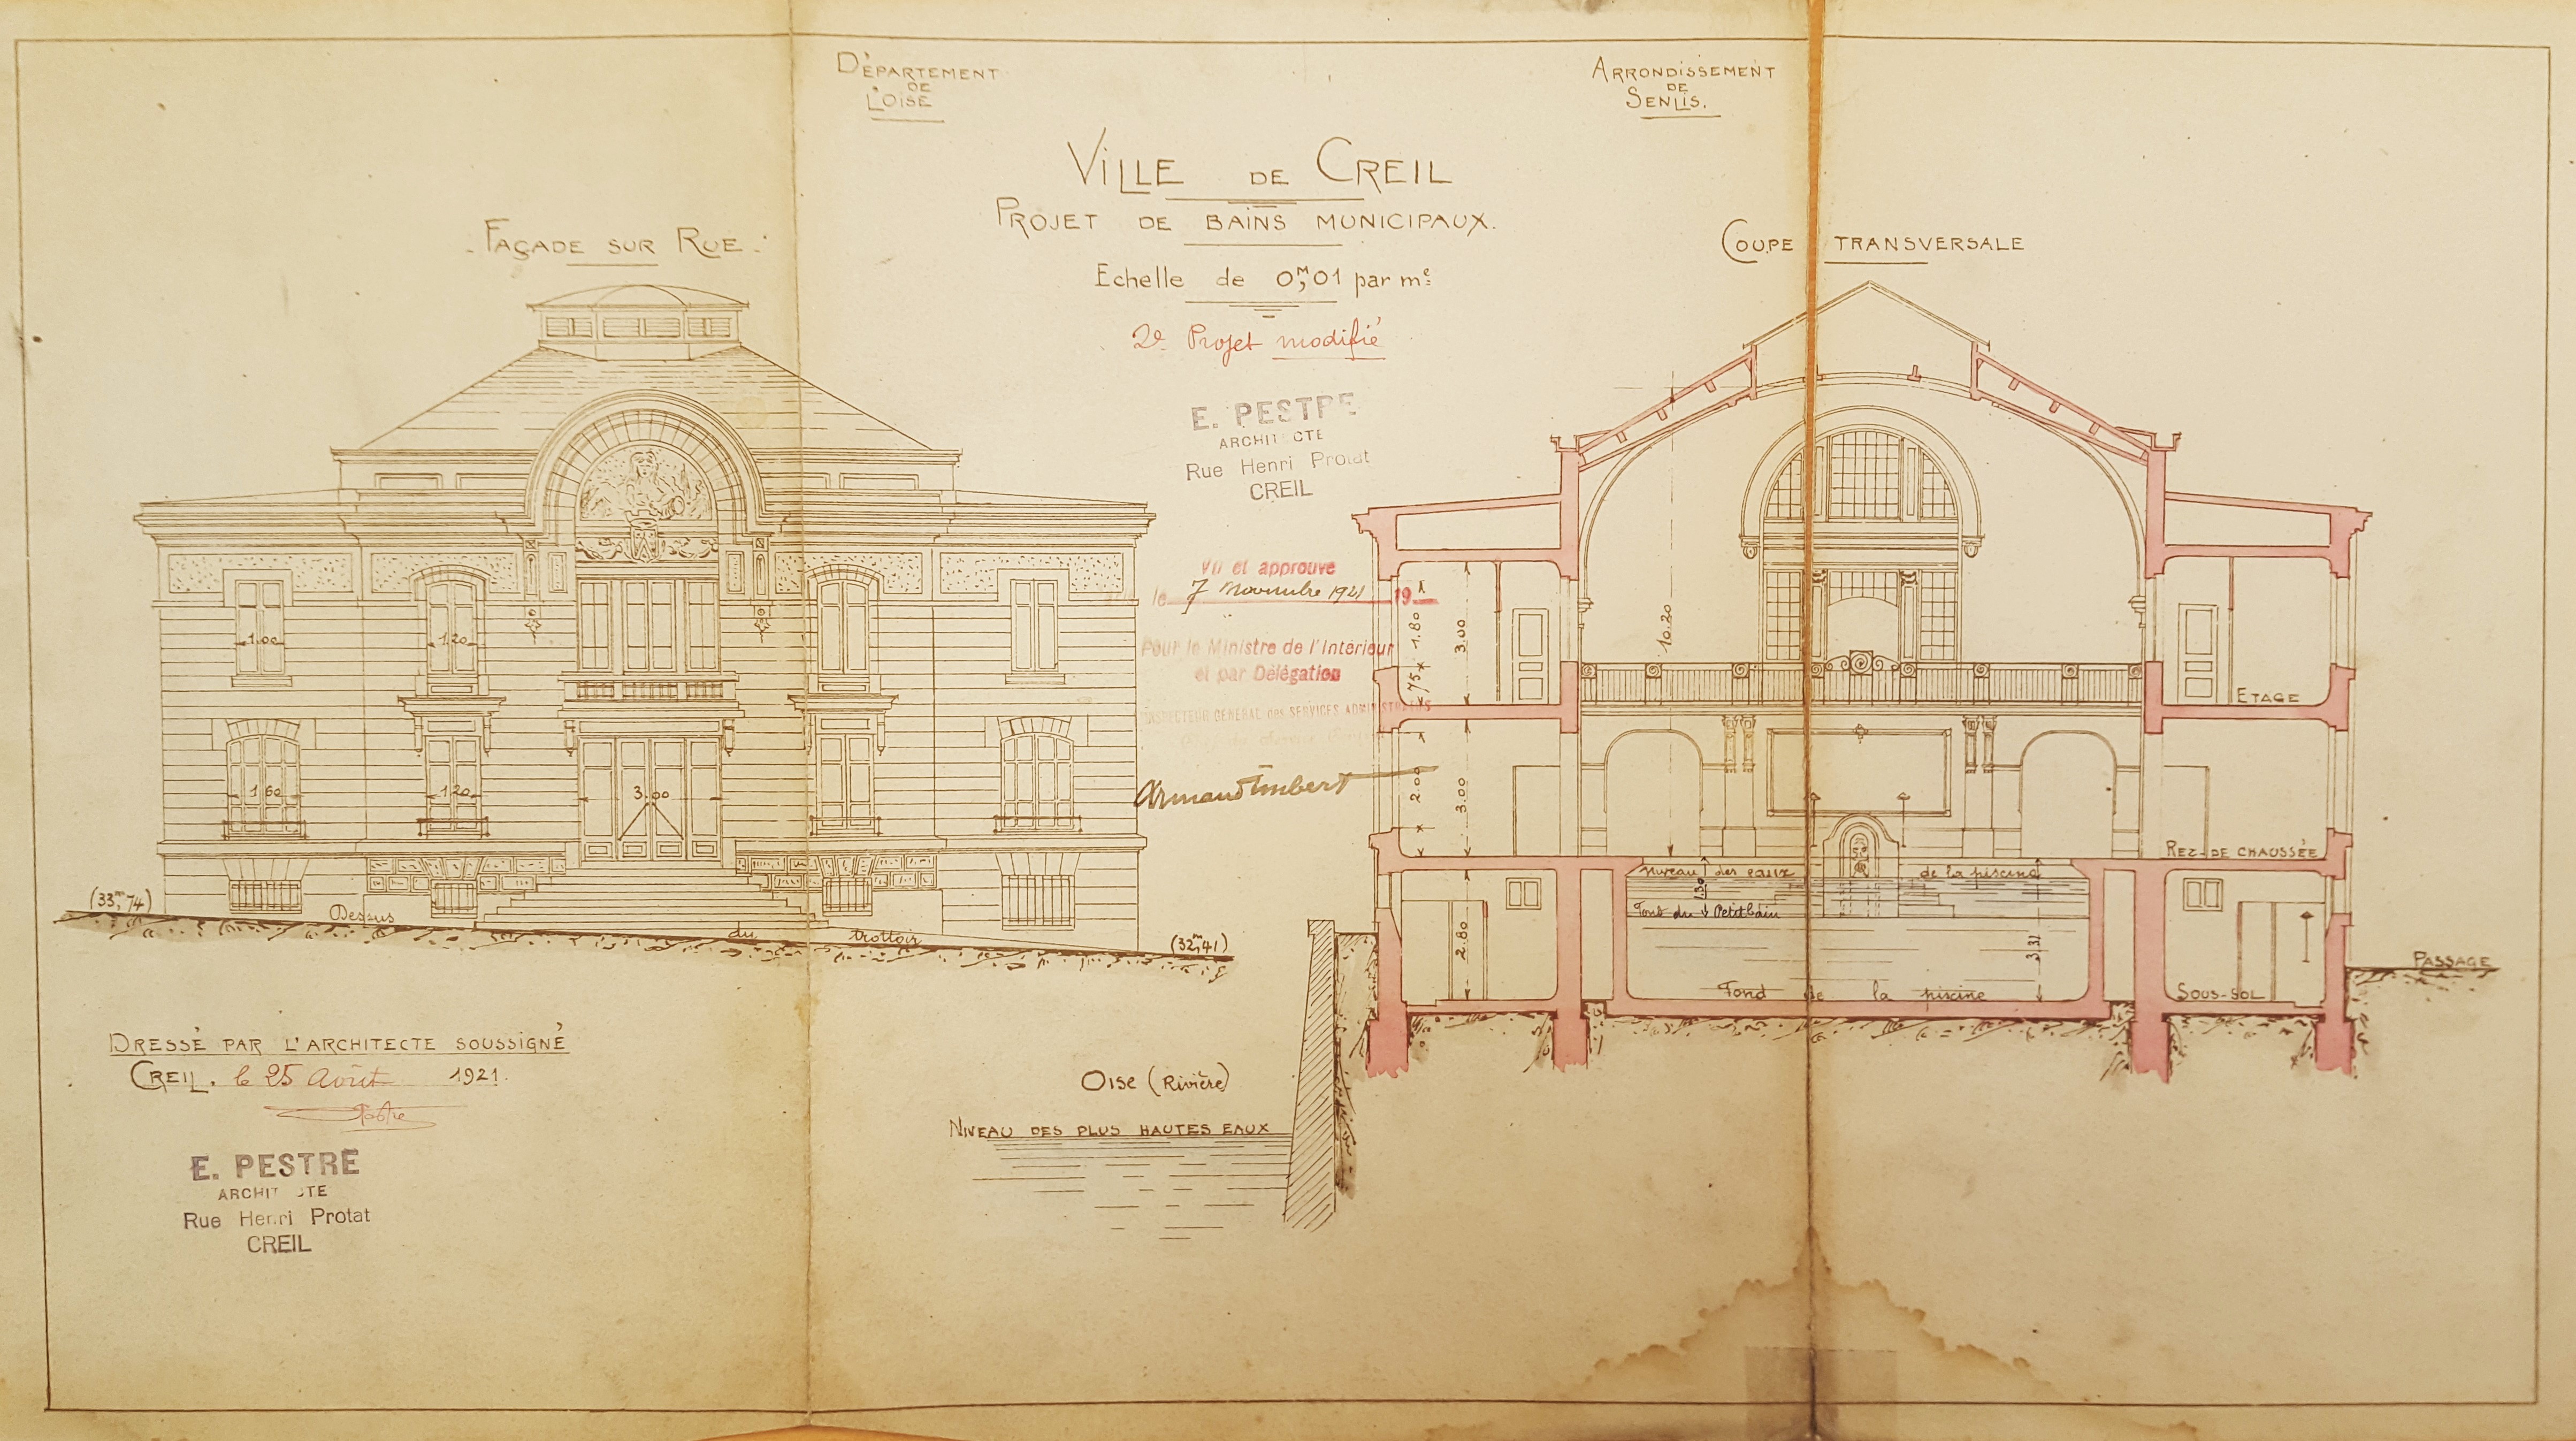 DÉPARTEMENT
DE
L'OISE
ARRONDISSEMENT
DE
SENLIS.
VILLE DE CREIL
PROJET DE BAINS MUNICIPAUX.
Echelle de 0,M01 par me
2e Projet modifié
E. PESTRE
ARCHITECTE
Rue Henri Protat
CREIL
Vu et approuvé
le 7 Novembre 1921 19
Pour le Ministre de l'Intérieur
et par Délégation
INSPECTEUR GÉNÉRAL des SERVICES ADMINISTRATIFS
Armand Imbert
- FAÇADE SUR RUE -
1.00
1.20
1.60
1.20
3.00
(33m,74)
Dessus du trottoir
(32m,41)
DRESSÉ PAR L'ARCHITECTE SOUSSIGNÉ
CREIL. le 25 Août 1921.
Pestre
E. PESTRE
ARCHITECTE
Rue Henri Protat
CREIL
COUPE TRANSVERSALE
1.80
3.00
10.20
75
ETAGE
2.00
3.00
REZ-DE CHAUSSÉE
niveau des eaux de la piscine
1.30
Fond du Petit bain
2.80
Fond de la piscine
SOUS-SOL
PASSAGE
OISE (RIVIÈRE)
NIVEAU DES PLUS HAUTES EAUX